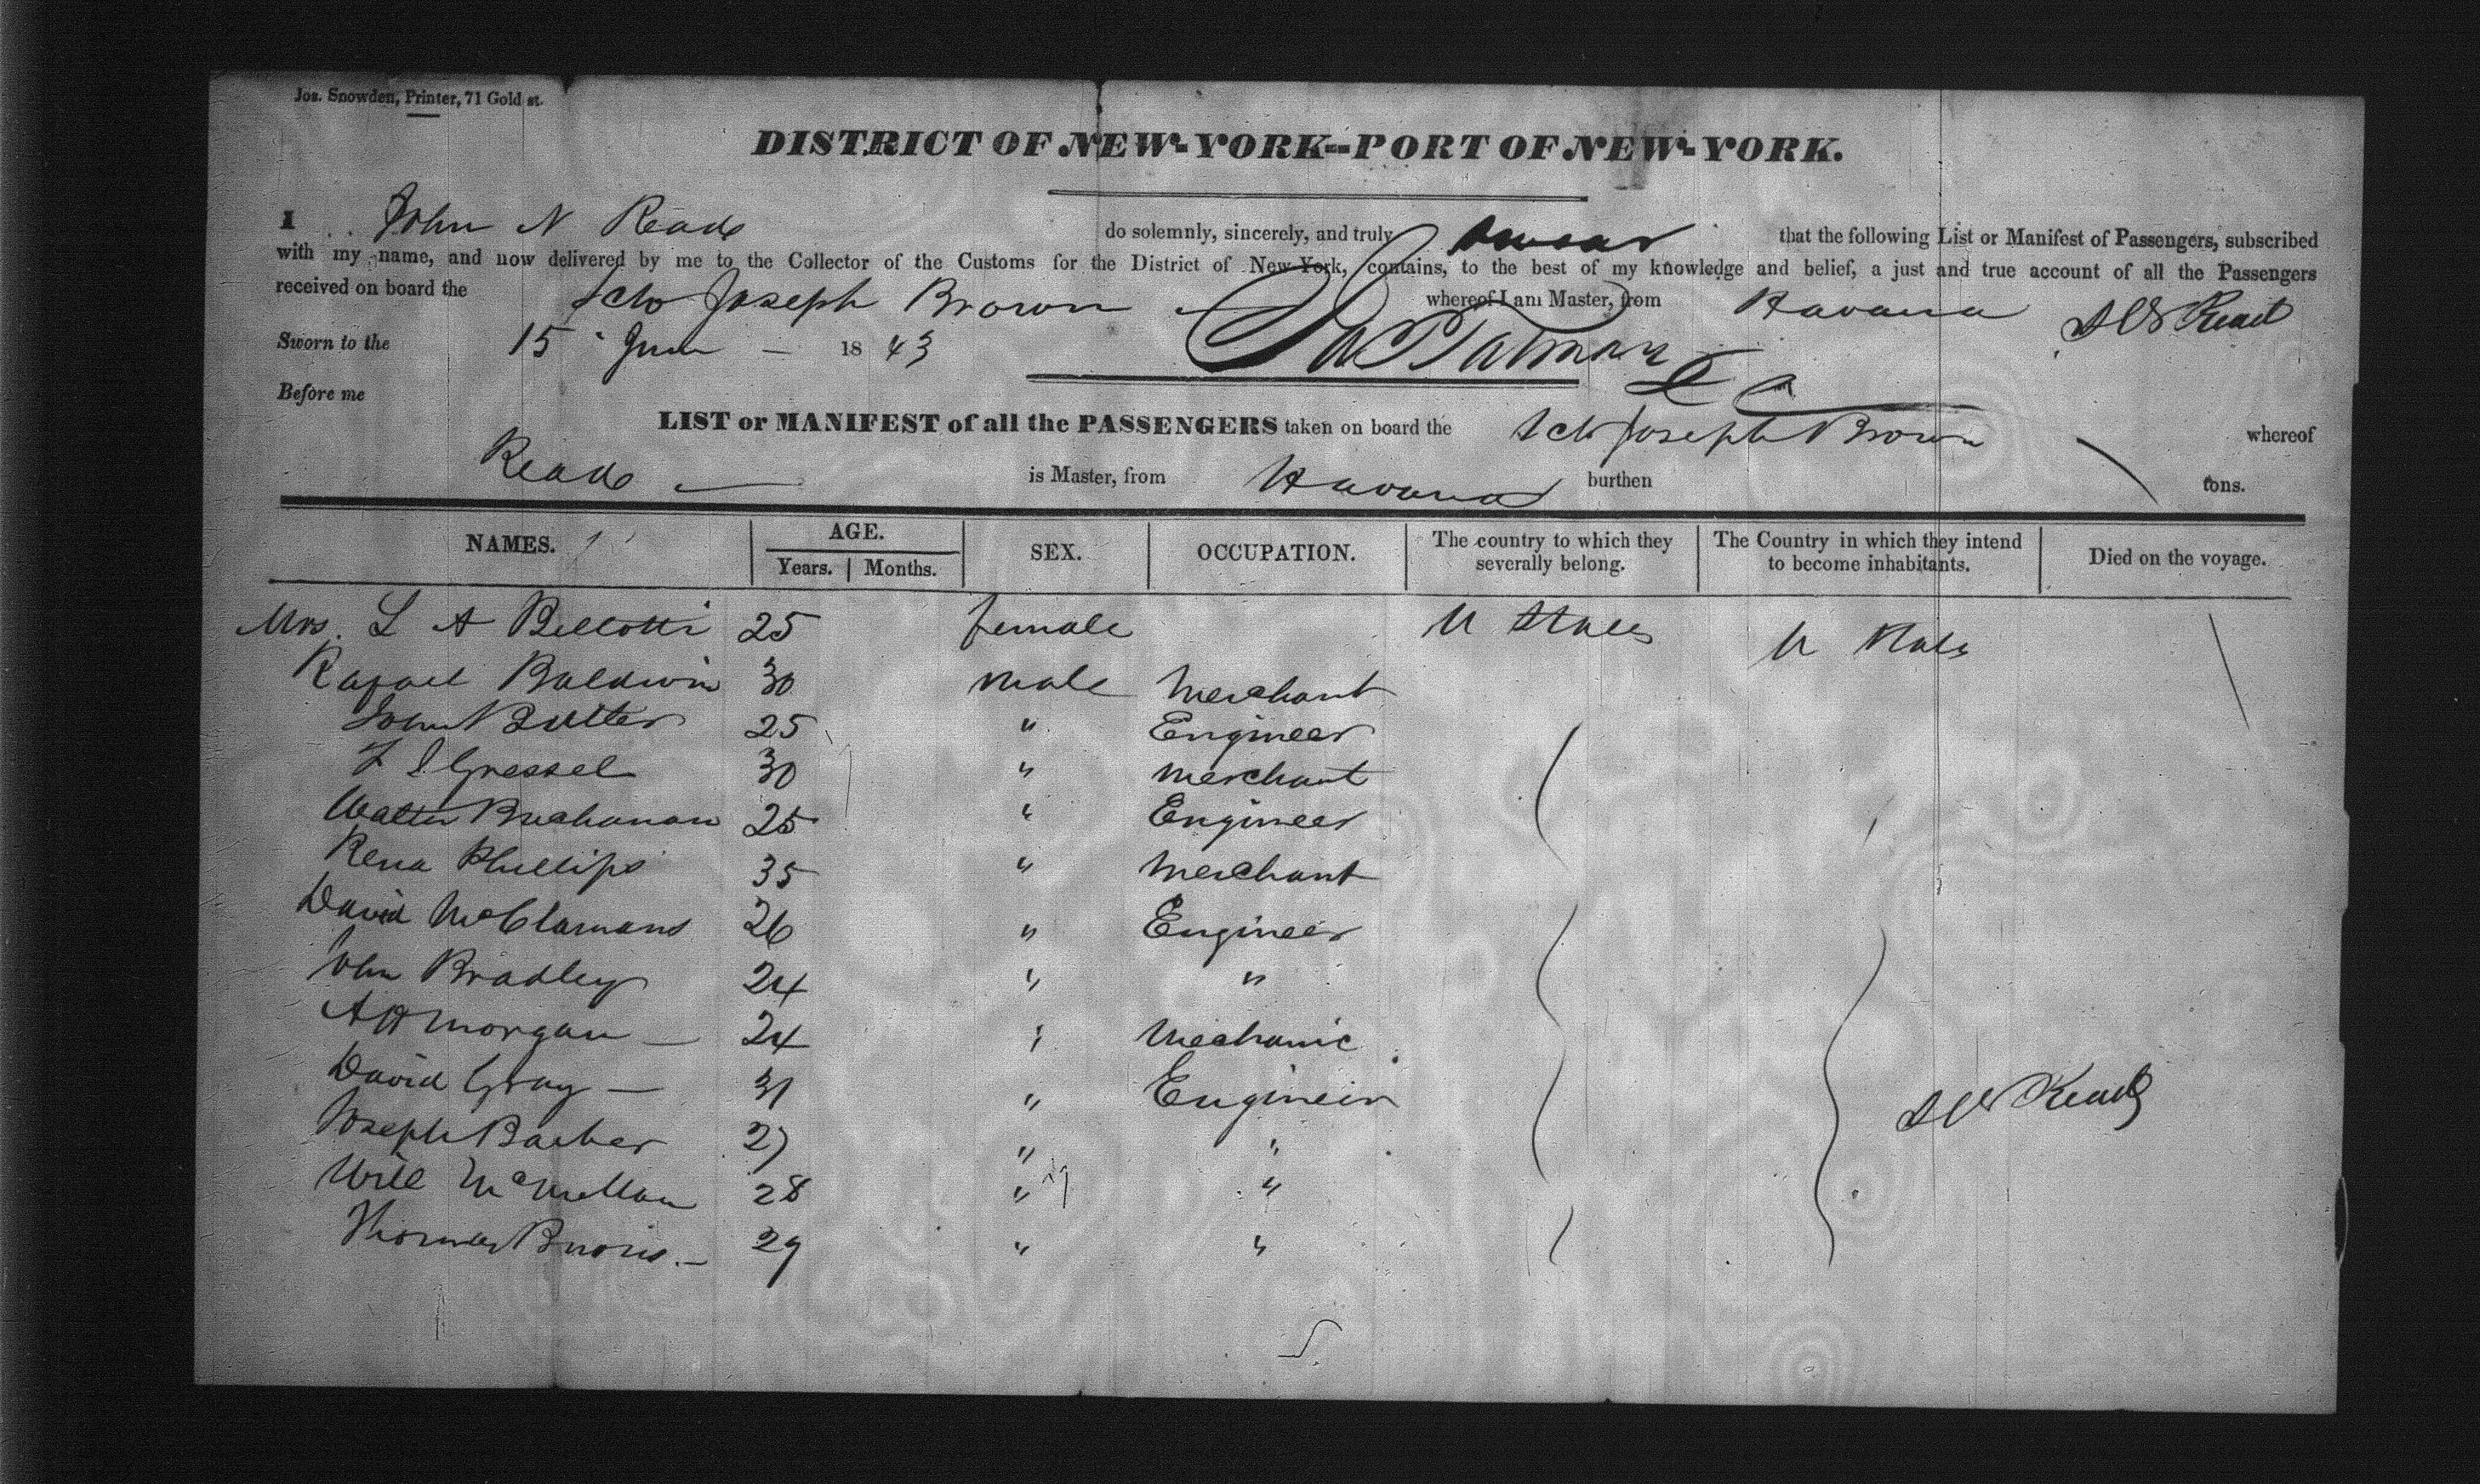 Jos. Snowden, Printer, 71 Gold st.
DISTRICT OF NEW-YORK--PORT OF NEW-YORK.
I John N Reade do solemnly, sincerely, and truly swear that the following List or Manifest of Passengers, subscribed
with my name, and now delivered by me to the Collector of the Customs for the District of New-York, contains, to the best of my knowledge and belief, a just and true account of all the Passengers
received on board the Sch Joseph Brown whereof I am Master, from Havana
Sworn to the 15 June 1843
Before me
LIST or MANIFEST of all the PASSENGERS taken on board the Sch Joseph Brown whereof
Reade is Master, from Havana burthen tons.
NAMES. AGE. Years. Months. SEX. OCCUPATION. The country to which they severally belong. The Country in which they intend to become inhabitants. Died on the voyage.
Mrs. L A Bellotti 25 female U States U States
Rafael Baldwin 30 male Merchant
John Butter 25 " Engineer
30 " Merchant
Walter Buchanan 25 " Engineer
Rena Phillips 35 " Merchant
David 26 " Engineer
John Bradley 24 " "
A H Morgan 24 " Mechanic
David Gray 31 " Engineer
Joseph Barber 27 " "
Will McMellan 28 " "
Thomas 29 " "